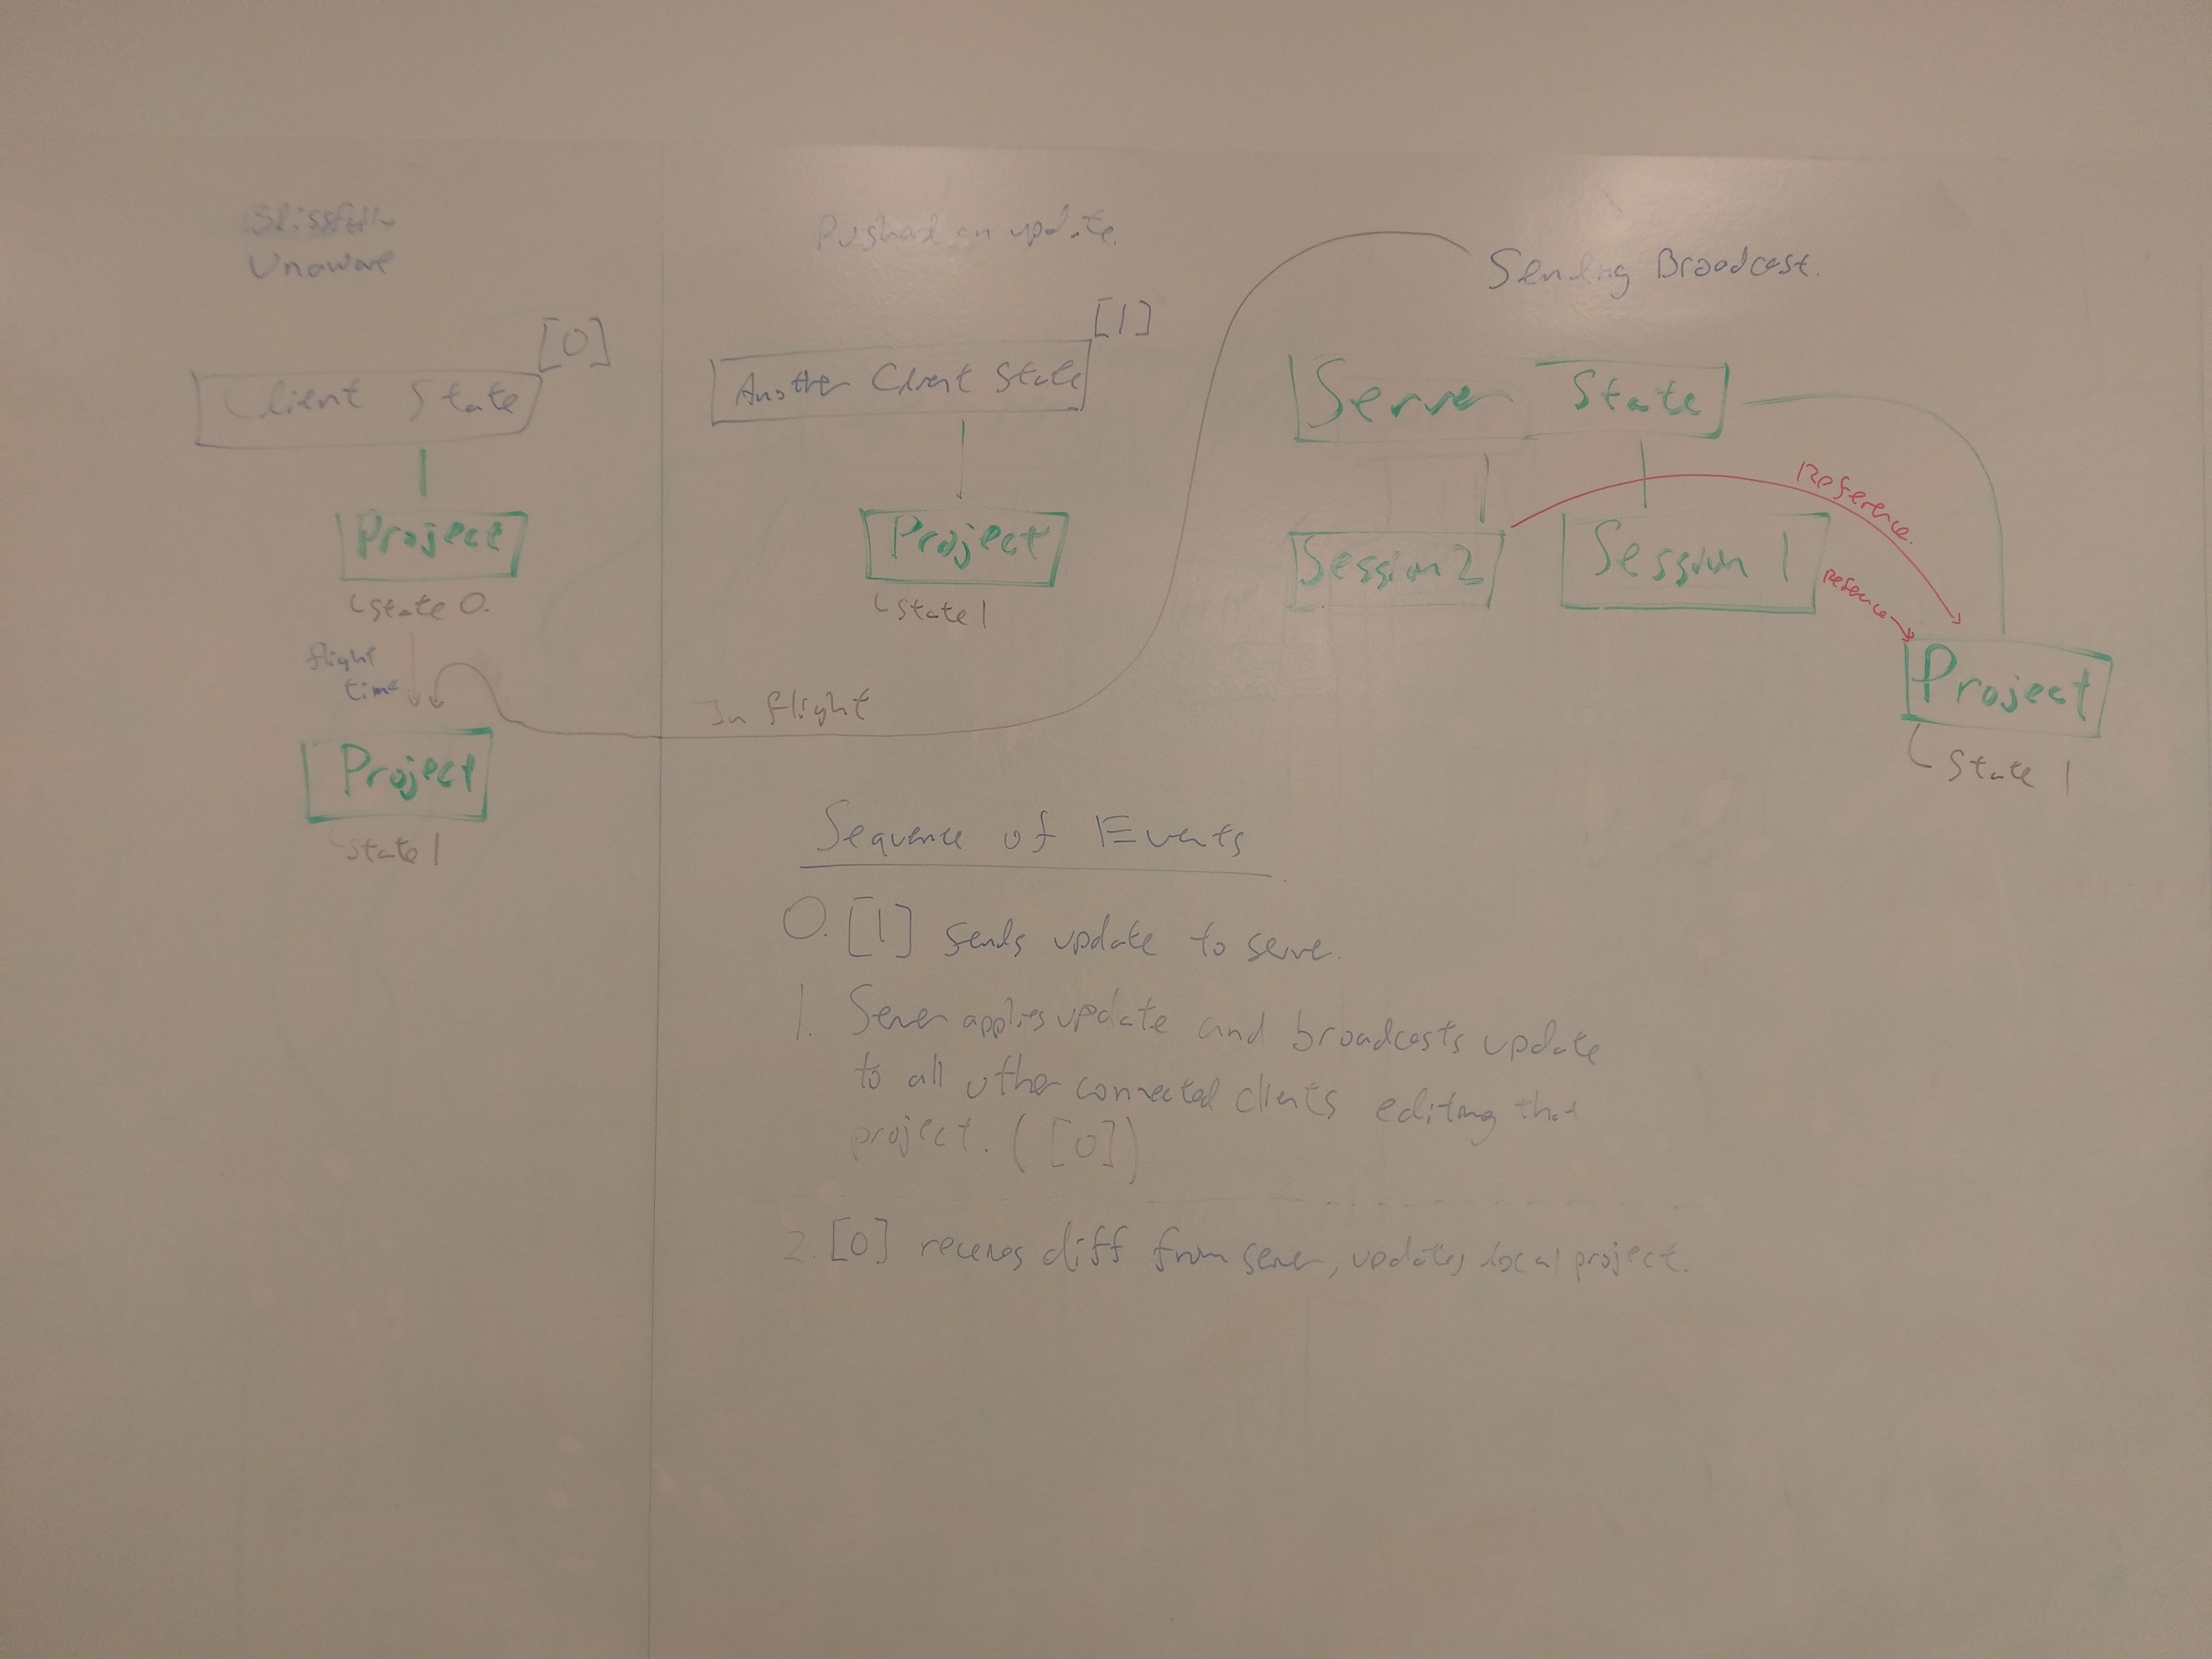 Blissfully
Unaware
[0]
Client State
Project
State 0.
flight
time
Project
State 1
Pushed an update.
[1]
Another Client State
Project
State 1
In flight
Sending Broadcast.
Server State
Session 2
Session 1
Reference.
Reference
Project
State 1
Sequence of Events
0. [1] sends update to serve.
1. Server applies update and broadcasts update
to all other connected clients editing that
project. ([0])
2. [0] receives diff from server, updates local project.